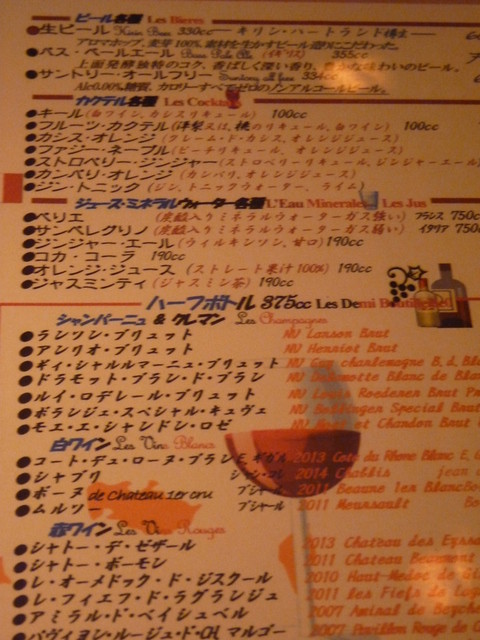 ビール各種 Les Bieres
●生ビール Kirin Beer 330cc ーキリン・ハートランド樽生ー
アロマホップ、麦芽100%、素材を生かすビール造りにこだわった。
●バス・ペールエール Bass Pale Ale (イギリス) 355cc
上面発酵独特のコク、香ばしく深い香り、豊かな味わいのビール。
●サントリー・オールフリー Suntory all free 334cc
Alc0.00%糖質、カロリーすべてゼロのノンアルコールビール。
カクテル各種 Les Cocktai
●キール(白ワイン、カシスリキュール) 100cc
●フルーツ・カクテル(洋梨又は、桃のリキュール、白ワイン) 100cc
●カシス・オレンジ (クレーム・ド・カシス、オレンジジュース)
●ファジー・ネーブル(ピーチリキュール、オレンジジュース)
●ストロベリー・ジンジャー(ストロベリーリキュール、ジンジャーエール)
●カンパリ・オレンジ (カンパリ、オレンジジュース)
●ジン・トニック (ジン、トニックウォーター、ライム)
ジュース・ミネラルウォーター各種 L'Eau Minerale Les Jus
●ペリエ (炭酸入りミネラルウォーターガス強い) フランス 750c
●サンペレグリノ (炭酸入りミネラルウォーターガス弱い) イタリア 750
●ジンジャー・エール(ウィルキンソン、甘口)190cc
●コカ・コーラ 190cc
●オレンジ・ジュース (ストレート果汁100%) 190cc
●ジャスミンティ (ジャスミン茶) 190cc
ハーフボトル 375cc Les Demi
シャンパーニュ & クレマン Les Champagnes
●ランソン・ブリュット NV Lanson Brut
●アンリオ・ブリュット NV Henriot Brut
●ギィ・シャルルマーニュ・ブリュット NV Guy charlemagne B.d.Bl
●ドラモット・ブラン・ド・ブラン NV Delamotte Blanc de Bla
●ルイ・ロデレール・ブリュット NV Louis Roederer Brut Pr
●ボランジェ・スペシャル・キュヴェ NV Bollinger Special Brut
●モエ・エ・シャンドン・ロゼ NV Moet et Chandon Brut
白ワイン Les Vins Blancs
●コート・デュ・ローヌ・ブラン E.ギガル 2013 Cote du Rhone Blanc E.G
●シャブリ 2014 Chablis jean
●ボーヌ de Chateau 1er cru ブシャール 2011 Beaune 1er BlancBo
●ムルソー ブシャール 2011 Meursault Bo
赤ワイン Les Vins Rouges
●シャトー・デ・ゼザール 2013 Chateau des Eyssa
●シャトー・ボーモン 2011 Chateau Beaumont
●レ・オーメドック・ド・ジスクール 2010 Haut-Medoc de Gi
●レ・フィエフ・ド・ラグランジュ 2011 les Fiefs de Lag
●アミラル・ド・ベイシュベル 2007 Amiral de Beyche
●パヴィヨン・ルージュ・ド・CH.マルゴー 2007 Pavillon Rouge de C